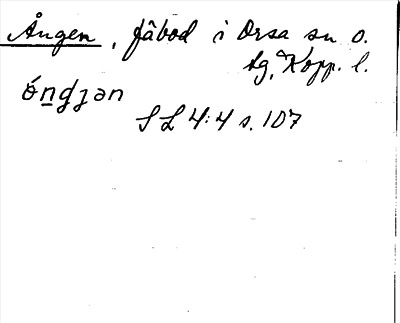 Ången, fäbod i Orsa sn o.
tg, Kopp. l.
óngjən
SL 4:4 s. 107